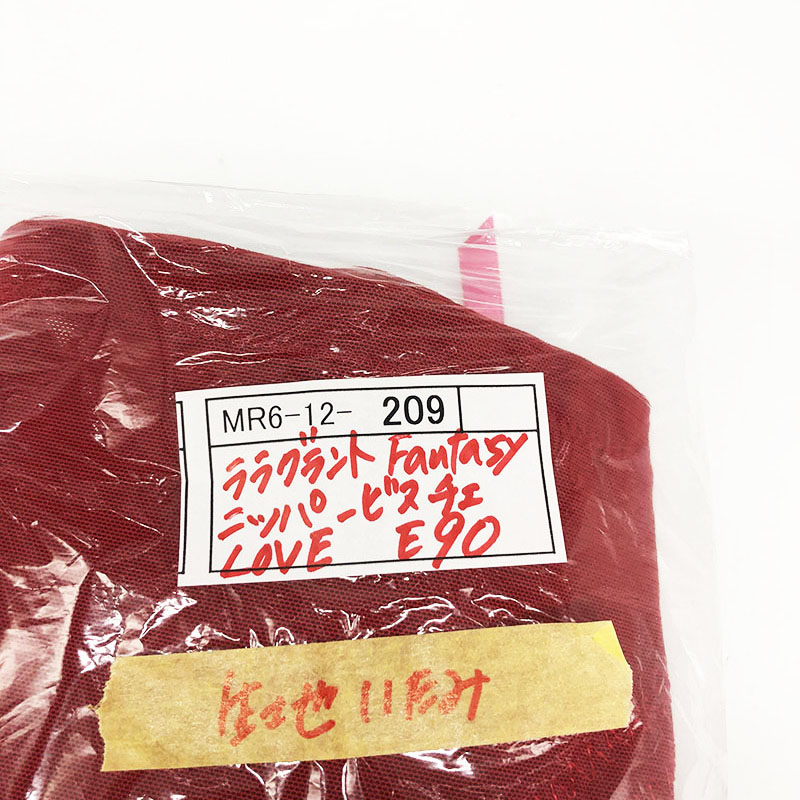 MR6-12- 209
ララグラント Fantasy
ニッパービスチェ
LOVE E90
いたみ